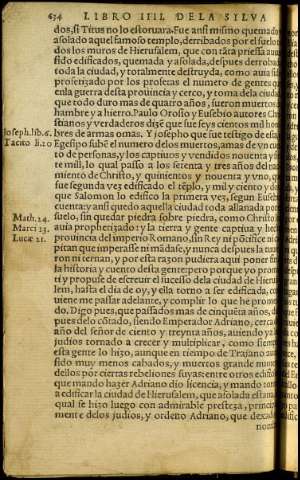 634 LIBRO IIII. DE LA SILVA
dos, si Titus no lo estoruara. Fue ansi mismo quemado y
asolado aquel famoso templo, derribados por el suelo to
dos los muros de Hierusalem, que con tãta priessa auia
sido edificados, quemada y asolada, despues de robada
toda la ciudad, y totalmente destruyda, como auia sido
prophetizado por los prophetas el numero de gentes que
en la guerra desta prouincia y cerco, y toma de la ciudad
que todo duro mas de quatro años, fueron muertos de
hambre y a hierro. Paulo Orosio y Eusebio autores Chri
stianos y verdaderos dizẽ que fue seys cientos mil hom
Joseph. lib. 6. bres de armas omas. Y Iosepho que fue testigo de ella
Tacito li. 20 Egesipo subẽ el numero de los muertos, a mas de vn cuẽ
to de personas, y los captiuos y vendidos nouenta y sie
te mill, lo qual passo a los setenta y tres años del na
miento de Christo, y quinientos y nouenta y vno, que
fue segunda vez edificado el tẽplo, y mil y ciento y dos
que Salomon lo edifico la primera vez, segun Eusebio
cuenta: y ansi quedo aquella ciudad toda allanada por el
Math. 24. suelo, sin quedar piedra sobre piedra, como Christo lo
Marci 23. auia prophetizado: y la tierra y gente captiua y hecha
Lucæ 21. prouincia del imperio Romano, sin Rey ni põtifice ni ca
pitan que imperasse ni mãdasse, y nunca despues la tuuie
ron ni ternan, y por esta razon pudiera aqui poner fin a
la historia y cuento desta gente: pero porque yo prome
ti y propuse de escreuir el sucesso de la ciudad de Hierusa
lem, hasta el dia de oy, y ella torno a ser edificada, con
uiene me passar adelante, y complir lo que he prometi
do. Digo pues, que passados mas de cinquẽta años, des
pues de lo cõtado, siendo Emperador Adriano, cerca del
año del señor de ciento y treynta años, auiendo ya los
judios tornado a crecer y multiplicar, como siempre
esta gente lo hizo, aunque en tiempo de Trajano auian
sido muy menos cabados, y muertos grande numero
dellos por ciertas rebeliones suyas: entre otros edificios
que mando hazer Adriano dio licencia, y mando tornar
a edificar la ciudad de Hierusalem, que asolada estaua, lo
qual se hizo luego con admirable presteza, principal
mente de los judios, y ordeno Adriano, que dexado
nomb